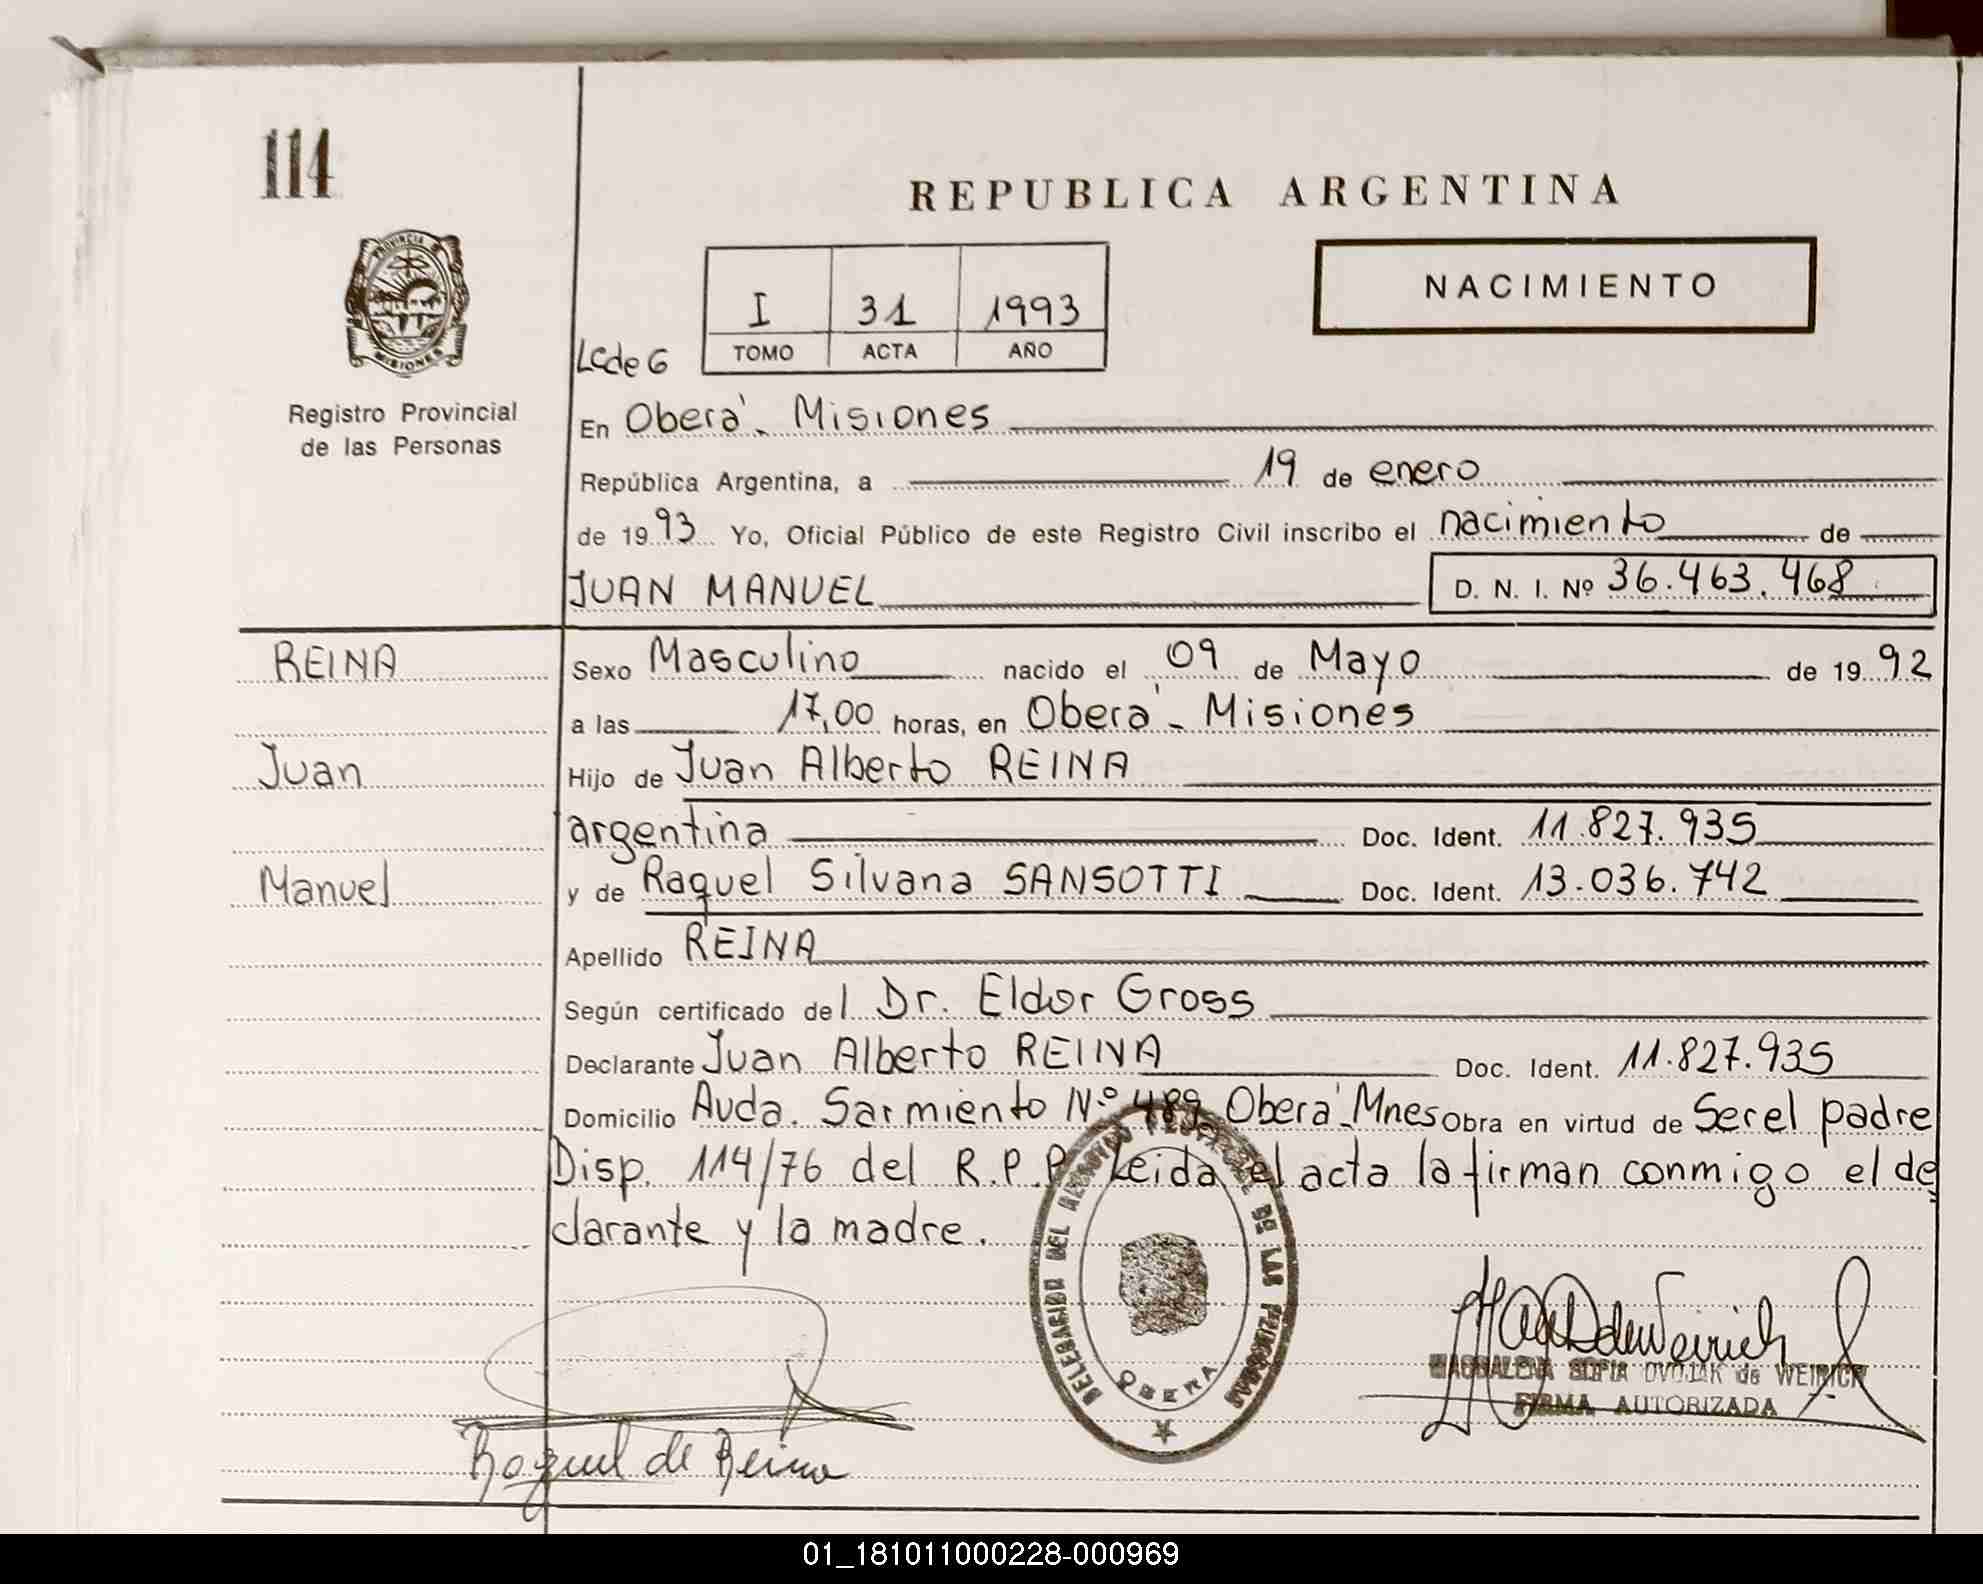 114
REPUBLICA ARGENTINA
PROVINCIA DE
MISIONES
Registro Provincial
de las Personas
I 31 1993
TOMO ACTA AÑO
NACIMIENTO
Lcde G
En Oberá - Misiones
República Argentina, a 19 de enero
de 1993 Yo, Oficial Público de este Registro Civil inscribo el nacimiento de
JUAN MANUEL D. N. I. Nº 36.463.468
REINA
Sexo Masculino nacido el 09 de Mayo de 1992
a las 17,00 horas, en Oberá - Misiones
Juan
Hijo de Juan Alberto REINA
argentina Doc. Ident. 11.827.935
Manuel
y de Raquel Silvana SANSOTTI Doc. Ident. 13.036.742
Apellido REINA
Según certificado del Dr. Eldor Gross
Declarante Juan Alberto REINA Doc. Ident. 11.827.935
Domicilio Avda. Sarmiento Nº 489 Oberá - Mnes Obra en virtud de Ser el padre
Disp. 114/76 del R.P.P. Leida el acta la firman conmigo el de
clarante y la madre.
DELEGACION DEL REGISTRO PROVINCIAL DE LAS PERSONAS
OBERA
MAGDALENA SOFIA DVOJAK de WEIRICH
FIRMA AUTORIZADA
Raquel de Reina
01_181011000228-000969